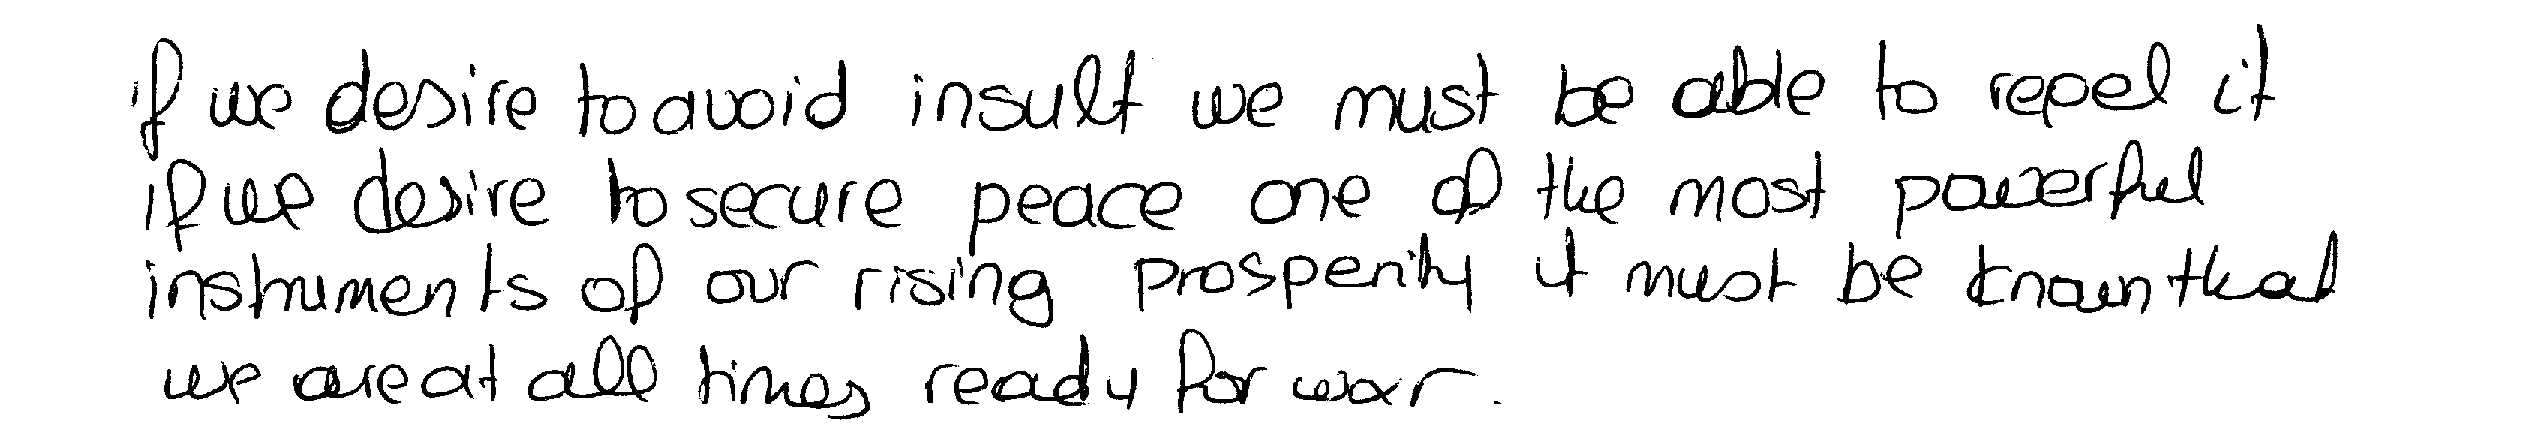 if we desire to avoid insult we must be able to repel it
if we desire to secure peace one of the most powerful
instruments of our rising prosperity it must be known that
we are at all times ready for war.